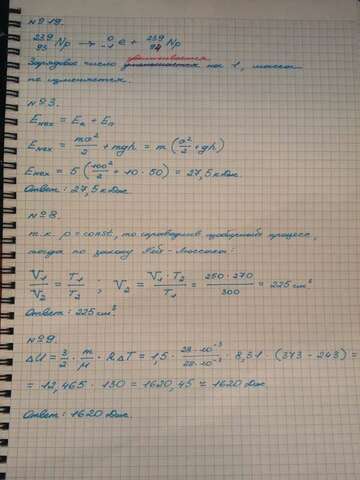 № 19.
²³⁹₉₃ Np → ⁰₋₁ e + ²³⁹₉₄ Np
увеличивается
Зарядовое число уменьшается на 1, массов.
не изменяется.
№ 3.
Eмех = Eк + Eп
Eмех = mv²/2 + mgh = m (v²/2 + gh)
Eмех = 5 (100²/2 + 10 · 50) = 27,5 кДж.
Ответ: 27,5 кДж.
№ 8.
т.к. p = const, то справедлив изобарный процесс,
тогда по закону Гей-Люссака:
V₁/V₂ = T₁/T₂ ; V₂ = V₁ · T₂/T₁ = 250 · 270/300 = 225 см³
Ответ: 225 см³.
№ 9.
ΔU = 3/2 · m/μ · R ΔT = 1,5 · 28 · 10⁻³/28 · 10⁻³ · 8,31 · (373 − 243) =
= 12,465 · 130 = 1620,45 ≈ 1620 Дж.
Ответ: 1620 Дж.